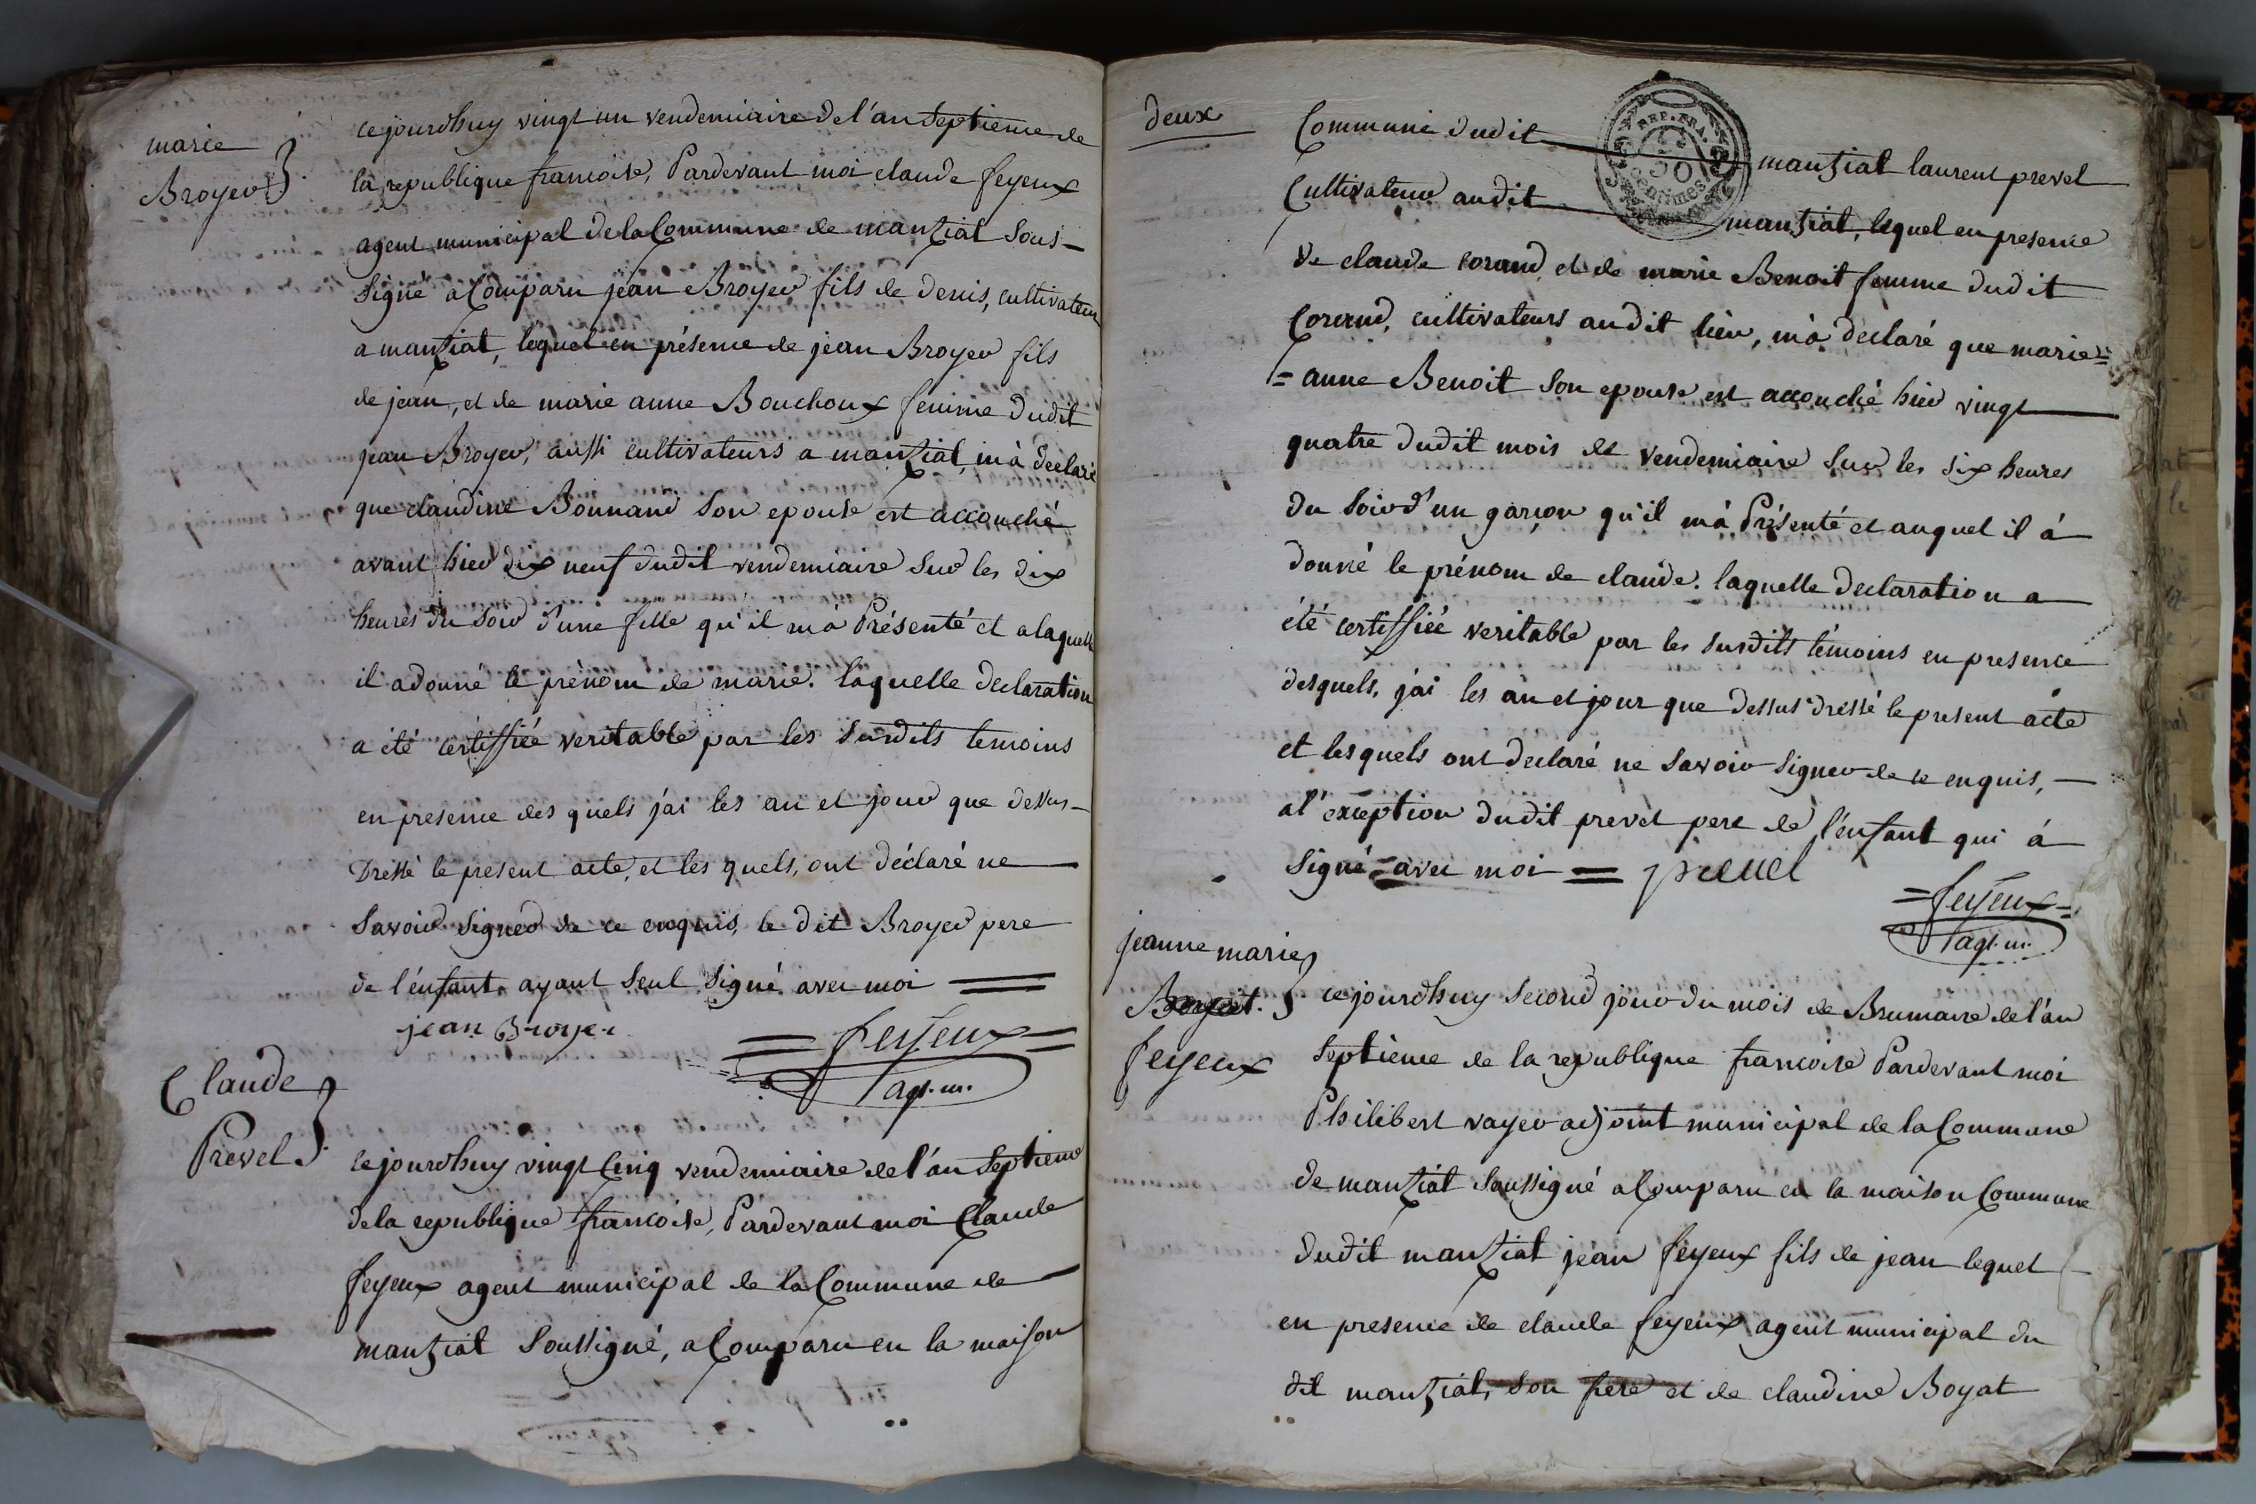 marie
Broyer
ce jourdhuy vingt un vendemiaire de l'an septieme de
la republique francoise, Pardevant moi claude feyeux
agent municipal de la Commune de manziat Sous-
signé a Comparu jean Broyer fils de denis, cultivateur
a manziat, lequel en présence de jean Broyer fils
de jean, et de marie anne Bouchoux femme dudit
jean Broyer, aussi cultivateurs a manziat, m'a declaré
que claudine Bonnand son epouse est accouché
avant hier dix neuf dudit vendemiaire sur les dix
heures du soir d'une fille qu'il m'a Présenté et a laquelle
il a donné le prénom de marie. laquelle declaration
a été certiffiée veritable par les susdits temoins
en presence des quels j'ai les an et jour que dessus-
Dressé le present acte, et les quels, ont déclaré ne
Savoir signer de ce enquis, le dit Broyer pere
de l'enfant ayant seul signé avec moi =
jean Broyer
= feyeux =
agt. m.
Claude
Prevel
Ce jourdhuy vingt Cinq vendemiaire de l'an septieme
de la republique francoise, Pardevant moi Claude
feyeux agent municipal de la Commune de
manziat Soussigné, a Comparu en la maison
deux
REP. FRA.
50
Centimes
Commune dudit manziat laurent prevel
Cultivateur audit manziat, lequel en presence
de claude corand et de marie Benoit femme dudit
Corand, cultivateurs audit lieu, m'à declaré que marie=
=anne Benoit son epouse est accouché hier vingt
quatre dudit mois de vendemiaire sur les six heures
du soir d'un garçon qu'il m'à Présenté et auquel il à
donné le prénom de claude. laquelle declaration a
été certiffiée veritable par les susdits témoins en presence
desquels, j'ai les an et jour que dessus dressé le present acte
et lesquels ont declaré ne savoir signer de ce enquis,
a l'exception dudit prevel pere de l'enfant qui à
signé avec moi = prevel
= feyeux =
agt. m.
jeanne marie
feyeux
ce jourdhuy second jour du mois de Brumaire de l'an
septieme de la republique francoise Pardevant moi
Philibert vayer adjoint municipal de la Commune
de manziat Soussigné a Comparu en la maison Commune
dudit manziat jean feyeux fils de jean lequel
en presence de claude feyeux agent municipal du
dit manziat, son frere et de claudine Boyat